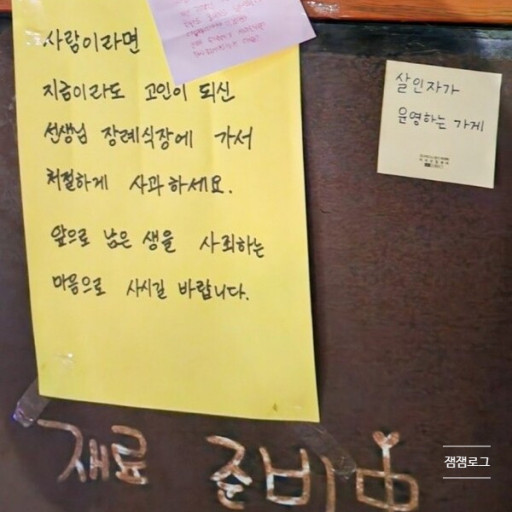 사람이라면
지금이라도 고인이 되신
선생님 장례식장에 가서
처절하게 사과하세요.
앞으로 남은 생을 사죄하는
마음으로 사시길 바랍니다.
살인자가
운영하는 가게
재료 준비중
잼잼로그